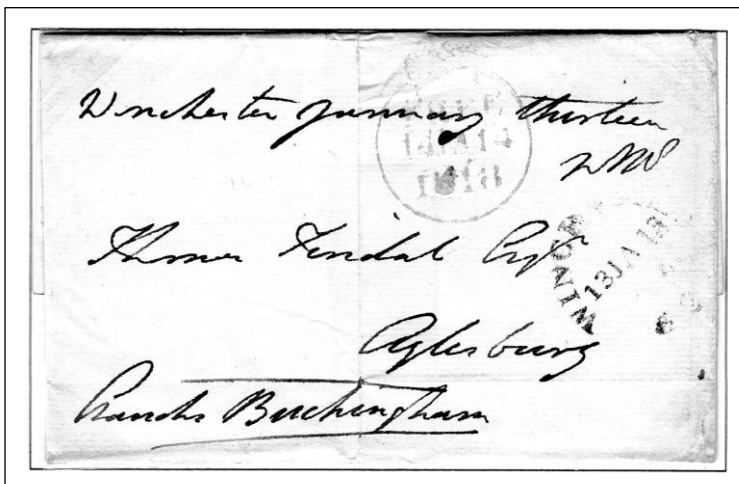 Winchester January thirteen
FREE
14 JA 14
1818
Thomas Tindal Esqr
WINCH
13 JA 18
Aylesbury
Chandos Buckingham